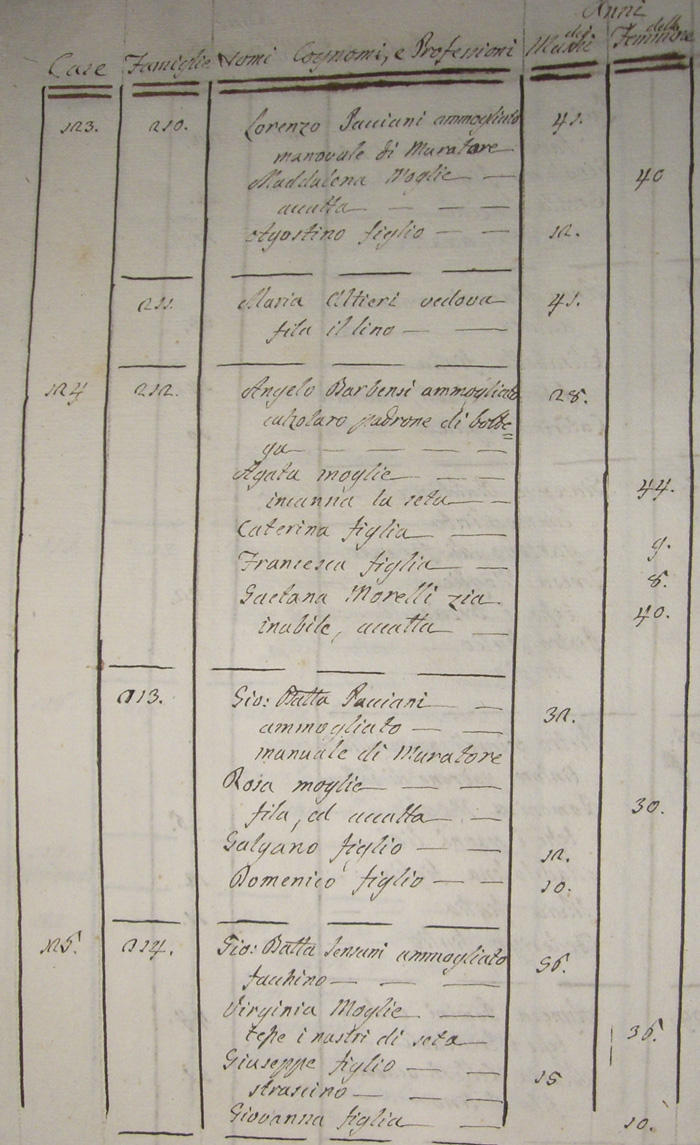 Anni
Case Famiglie Nomi Cognomi, e Professioni Maschi delle Femmine
123. 210. Lorenzo Pacciani ammogliato 41.
manovale di Muratore
Maddalena Moglie 40
accatta
Agostino figlio 12.
211. Maria Altieri vedova 41.
fila il lino
124 212. Angelo Barbensi ammogliato 28.
calzolaro padrone di botte=
ga
Agata moglie
incanna la seta 44.
Caterina figlia 9.
Francesca figlia 8.
Gaetana Morelli zia 40.
inabile, accatta
213. Gio: Batta Pacciani 32.
ammogliato
manuale di Muratore
Rosa moglie
fila, ed accatta 30.
Galgano figlio 12.
Domenico figlio 10.
125. 214. Gio: Batta Sensani ammogliato 56.
facchino
Virginia Moglie
tesse i nastri di seta 36.
Giuseppe figlio 15
strascino
Giovanna figlia 10.